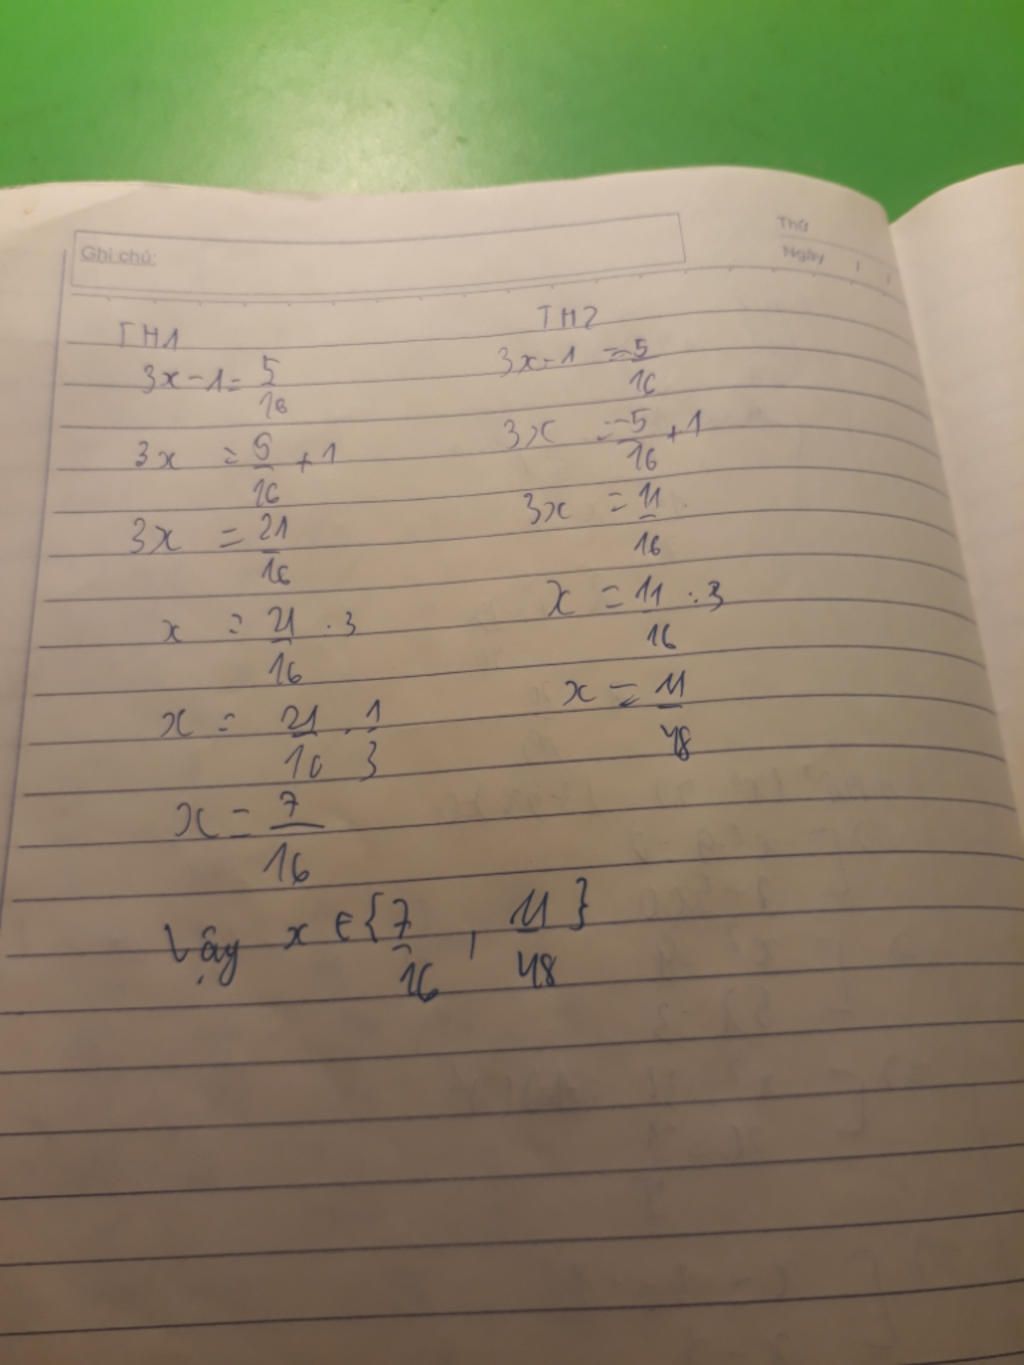 Ghi chú:
Thứ
Ngày / /
TH1
3x - 1 = 5/16
3x = 5/16 + 1
3x = 21/16
x = 21/16 : 3
x = 21/16 . 1/3
x = 7/16
TH2
3x - 1 = -5/16
3x = -5/16 + 1
3x = 11/16
x = 11/16 : 3
x = 11/48
Vậy x ∈ {7/16 , 11/48}